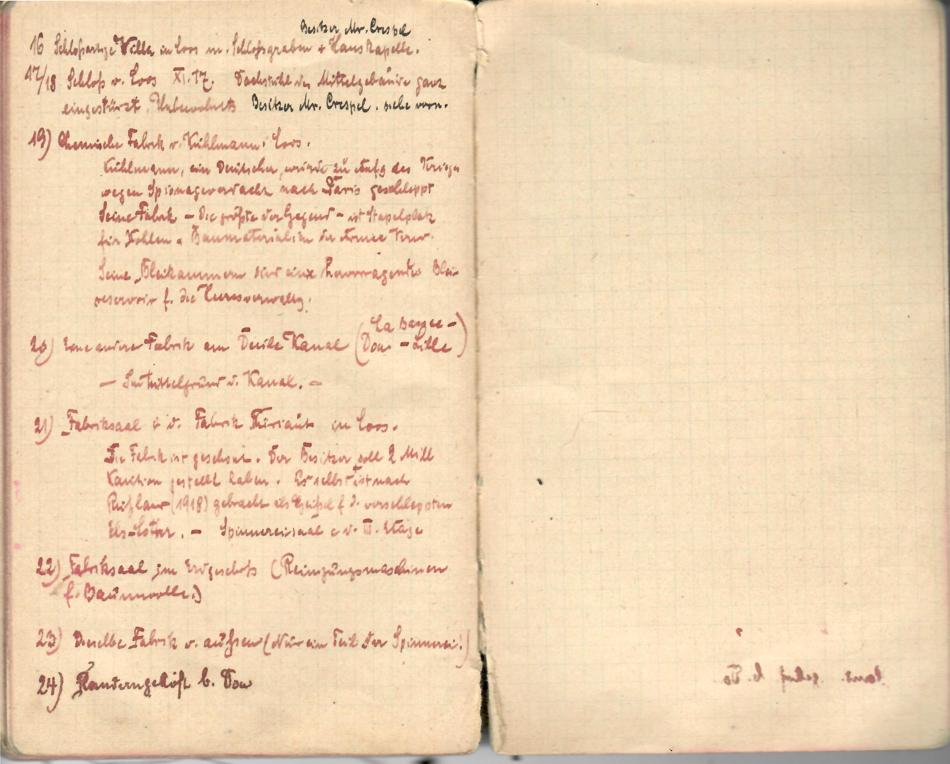 Besitzer Mr. Crespel
16 Schloßartige Villa in Loos m. Schloßgraben + Hauskapelle.
17/18 Schloß v. Loos XI.17. Dachstuhl des Mittelgebäudes ganz
eingestürzt. Unbewohnt Besitzer Mr. Crespel. siehe vorn.
19) Chemische Fabrik v. Kuhlmann, Loos.
Kuhlmann, ein Deutscher, wurde zu Anfg des Krieges
wegen Spionageverdacht nach Paris geschleppt
Seine Fabrik – Die größte der Gegend – ist Stapelplatz
für Kohlen u Baumaterialien der Armee Verw.
Seine Bleikammern sind eine hervorragendes Blei-
reservoir f. die Heeresverwaltg.
20) Eine andere Fabrik am Deule Kanal (La Bassee –
Don – Lille)
– Im Mittelgrund d. Kanal. –
21) Fabriksaal i. d. Fabrik Thiriaut in Loos.
Die Fabrik ist geschont. Der Besitzer soll 2 Mill
Kaution gestellt haben. Er selbst ist nach
Rußland (1918) gebracht als Geißel f. d. verschleppten
Els-Lothr. – Spinnereisaal i. d. II. Etage
22) Fabriksaal im Erdgeschoß (Reinigungsmaschinen
f. Baumwolle.)
23) Dieselbe Fabrik v. außsen (Nur ein Teil der Spinnerei.)
24) b. Don